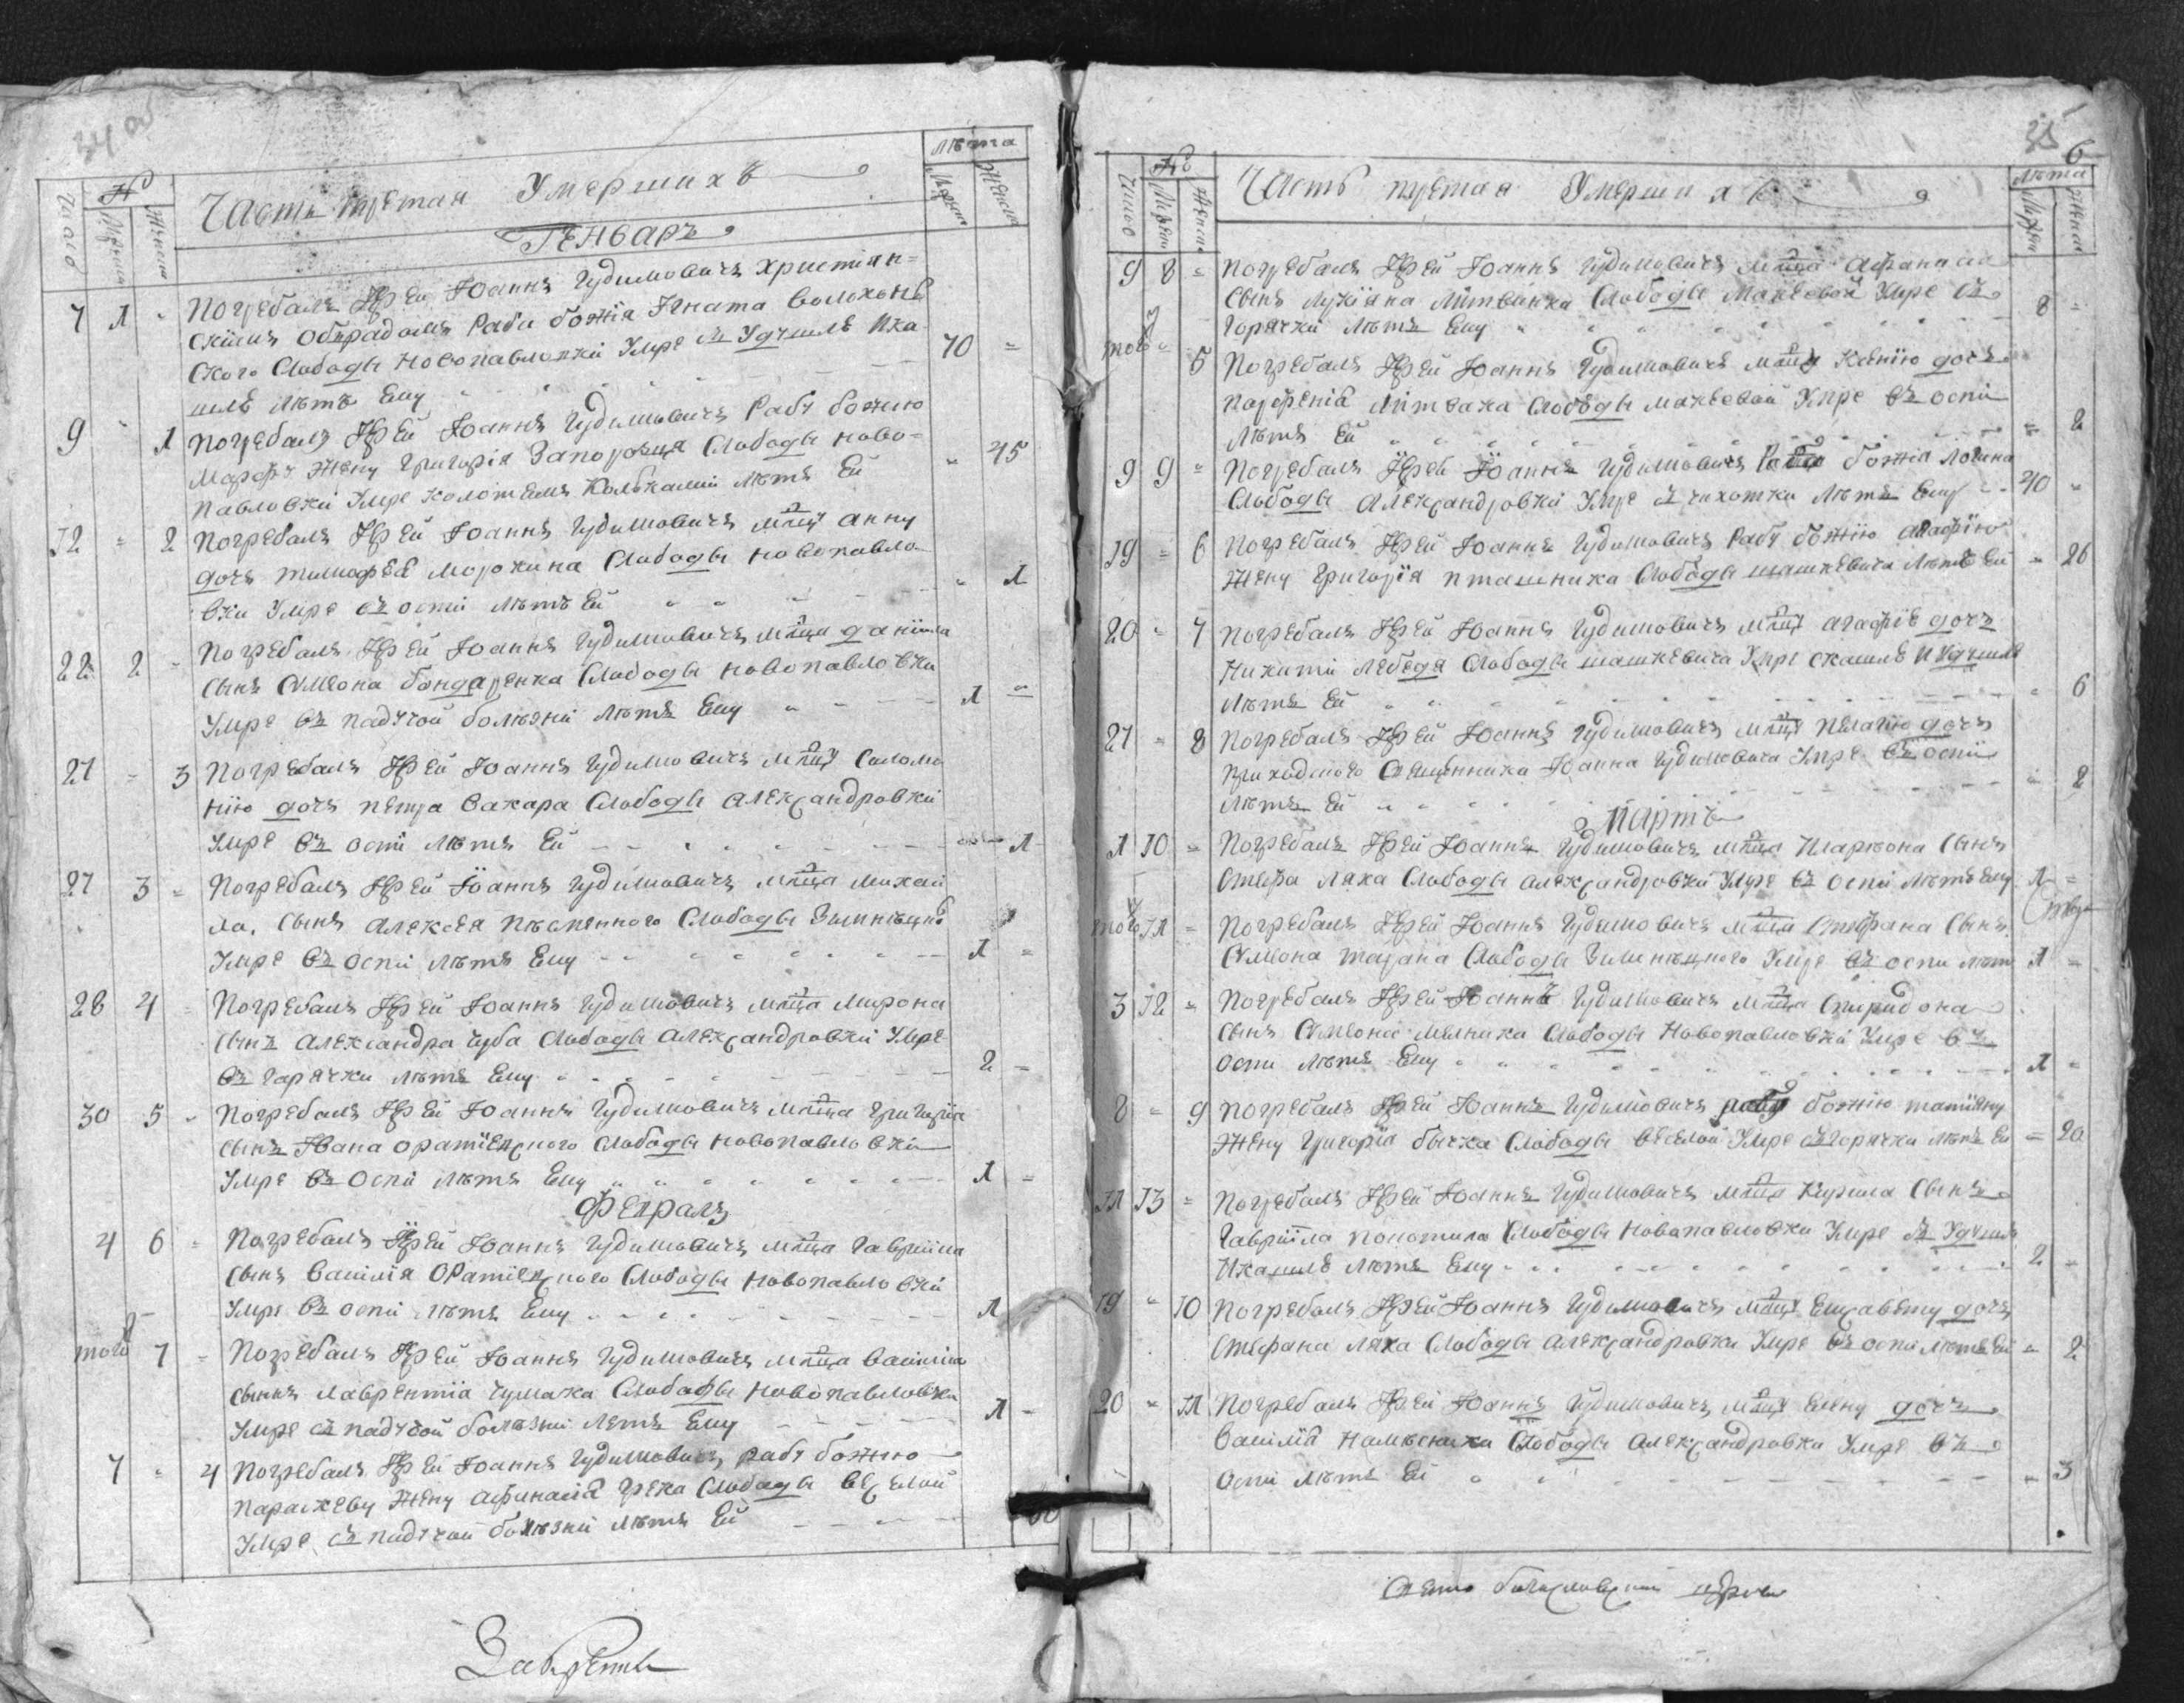 34 об
Число
№
Мужеска
Женска
Часть третая Умершихъ
Лѣта
Мужеск
Женска
Генваръ
7 1 - Погребалъ Іерей Іоаннъ Чудиловичъ христіян=
скимъ обɪрадомъ Раба божія Игната Волохонѣ
ского Слободы Новопавловки Умре съ Удушля Ика
шля Лѣтъ Ему 70 =
9 - 1 Погребалъ Іерей Іоаннъ Чудиловичъ Рабу божию
Марфу Жену Григорія Запорожця Слободы Ново=
павловки Умре Колотемъ Кольками Лѣтъ Ей - 45
12 = 2 Погребалъ Іерей Іоаннъ Чудиловичъ млцу Анну
дочъ Тимофея Морохина Слободы Новопавло
вки Умре въ оспи Лѣтъ Ей - 1
22 2 - Погребалъ Іерей Іоаннъ Чудиловичъ млца Даніила
сынъ Сѵмеона бондаренка Слободы Новопавловки
Умре въ падучой болѣзни Лѣтъ Ему 1 =
27 - 3 Погребалъ Іерей Іоаннъ Чудиловичъ млцу Соломо
нію дочъ петра Захара Слободы Александровки
Умре въ оспи Лѣтъ Ей 1
27 3 = Погребалъ Іерей Іоаннъ Чудиловичъ млца Михаи
ла, сынъ Алексея Слободы
Умре въ оспи Лѣтъ Ему 1 =
28 4 - Погребалъ Іерей Іоаннъ Чудиловичъ млца Мирона
сынъ Александра Чуба Слободы Александровки Умре
въ Гарячки Лѣтъ Ему 2 -
30 5 - Погребалъ Іерей Іоаннъ Чудиловичъ млца Григорія
сынъ Ивана Слободы Новопавловки
Умре въ Оспи Лѣтъ Ему 1 =
Февралъ
4 6 = Погребалъ Іерей Іоаннъ Чудиловичъ млца Гавриила
сынъ Василія Слободы Новопавловки
Умре въ оспи Лѣтъ Ему 1
того 7 = Погребалъ Іерей Іоаннъ Чудиловичъ млца Василия
сынъ Лаврентія Чумака Слободы Новопавловки
Умре съ падучой болѣзни Лѣтъ Ему 1 -
7 = 4 Погребалъ Іерей Іоаннъ Чудиловичъ рабу божию
Параскеву Жену Афанасія Грека Слободы Веселой
Умре съ падучой болѣзни Лѣтъ Ей
35
6
Число
№
Мужеск
Женска
Часть третая Умерших
Лѣта
Мужеск
Женска
9 8 = Погребалъ Іерей Іоаннъ Чудиловичъ млца Афанасия
сынъ Лукіяна Литвинка Слободы Макеевой Умре съ
Горячки Лѣтъ Ему 8 =
того = 5 Погребалъ Іерей Іоаннъ Чудиловичъ млцу Ксенію дочъ
Порфенія Литвака Слободы Макѣевой Умре въ оспи
Лѣтъ Ей = 2
9 9 = Погребалъ Іерей Іоаннъ Чудиловичъ Раба божія Логина
Слободы Александровки Умре съ чихотки Лѣтъ Ему 40 =
19 = 6 Погребалъ Іерей Іоаннъ Чудиловичъ Рабу божію Агафію
Жену Григорія Пташника Слободы Шашкевича Лѣтъ Ей = 26
20 = 7 Погребалъ Іерей Іоаннъ Чудиловичъ млцу Агафіе дочъ
Никити Лебедя Слободы Шашкевича Умре скашля и Удушля
Лѣтъ Ей - 6
27 = 8 Погребалъ Іерей Іоаннъ Чудиловичъ млцу Пелагію дочъ
приходского Священника Іоанна Чудиловича Умре въ оспи
Лѣтъ Ей = 2
Мартъ
1 10 = Погребалъ Іерей Іоаннъ Чудиловичъ млца Иларіона сынъ
Стефа Ляха Слободы Александровки Умре въ Оспи Лѣтъ Ему 1 =
того 11 = Погребалъ Іерей Іоаннъ Чудиловичъ млца Стефана сынъ
Сѵмеона Тарана Слободы Умре въ оспи Лѣт 1 =
3 12 = Погребалъ Іерей Іоаннъ Чудиловичъ млца Спиридона
сынъ Сѵмеона Мелника Слободы Новопавловки Умре въ
оспи Лѣтъ Ему 1 =
8 = 9 Погребалъ Іерей Іоаннъ Чудиловичъ рабу божію Татияну
Жену Григорія бычка Слободы Веселой Умре съ горячки Лѣтъ Ей = 20
11 13 = Погребалъ Іерей Іоаннъ Чудиловичъ млца Курила сынъ
Гавріила Слободы Новопавловки Умре съ Удушля
Икашля Лѣтъ Ему 2 =
19 = 10 Погребалъ Іерей Іоаннъ Чудиловичъ млцу Елисавету дочъ
Стефана Ляха Слободы Александровки Умре въ оспи Лѣтъ Ей = 2
20 = 11 Погребалъ Іерей Іоаннъ Чудиловичъ млцу Елену дочъ
Василія Намѣсника Слободы Александровки Умре въ
Оспи Лѣтъ Ей = 3
Свято богословской церкви